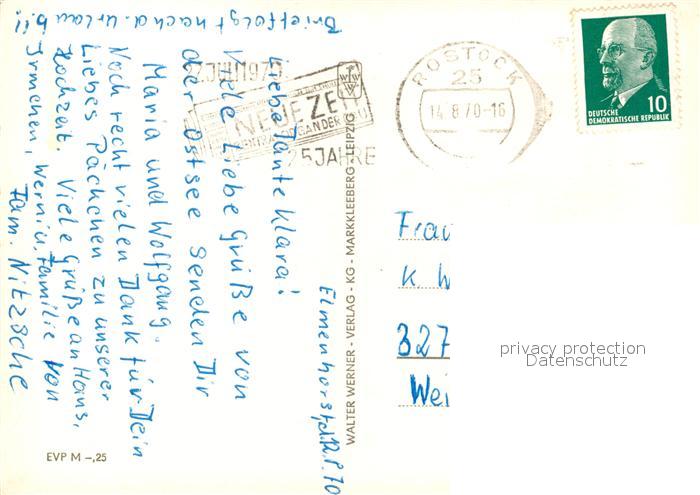 Elmenhorst, d. 12.8.70
Liebe Tante Klara!
Viele Liebe Grüße von
der Ostsee senden Dir
Maria und Wolfgang.
Noch recht vielen Dank für Dein
Liebes Päckchen zu unserer
Hochzeit. Viele Grüße an Hans,
Irmchen, Werni u. Familie von
Fam Nitzsche
Brief folgt nach d. Urlaub!!
EVP M –,25
WALTER WERNER - VERLAG - KG - MARKKLEEBERG - LEIPZIG
NEUE ZEIT
25 JAHRE
ROSTOCK
25
14.8.70-16
10
DEUTSCHE
DEMOKRATISCHE REPUBLIK
Frau
K W
327
Wei
privacy protection
Datenschutz